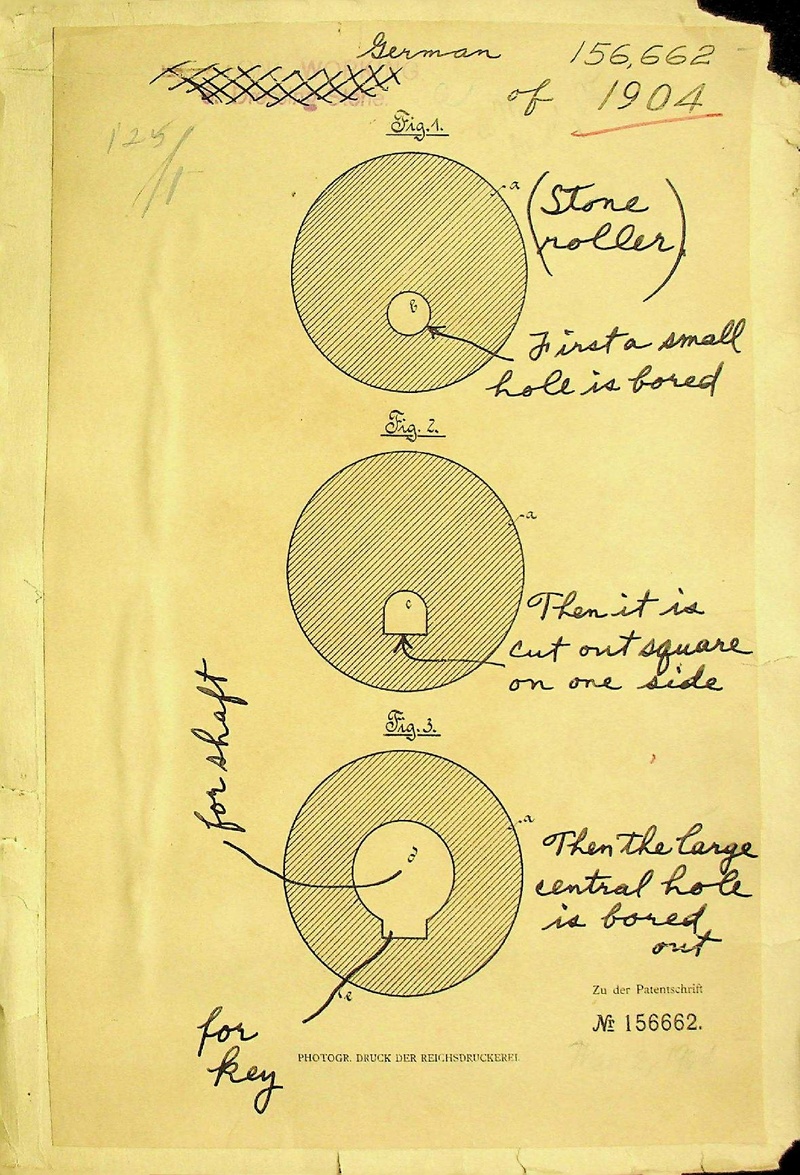 German 156,662
of 1904
125/1
Fig. 1.
a
(Stone
roller)
b
First a small
hole is bored
Fig. 2.
a
c
Then it is
cut out square
on one side
for shaft
Fig. 3.
a
d
Then the large
central hole
is bored
out
e
for
key
Zu der Patentschrift
№ 156662.
PHOTOGR. DRUCK DER REICHSDRUCKEREI.